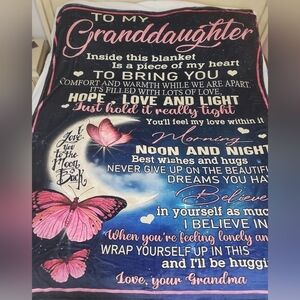 TO MY
Granddaughter
Inside this blanket
Is a piece of my heart
TO BRING YOU
COMFORT AND WARMTH WHILE WE ARE APART,
IT'S FILLED WITH LOTS OF LOVE,
HOPE LOVE AND LIGHT
Just hold it really tight
You'll feel my love within it
Morning
NOON AND NIGHT
Best wishes and hugs
NEVER GIVE UP ON THE BEAUTIF
DREAMS YOU HA
Believe
in yourself as muc
I BELIEVE IN
When you're feeling lonely an
WRAP YOURSELF UP IN THIS
and I'll be huggi
Love, your Grandma
I Love
You
to the
Moon
Back